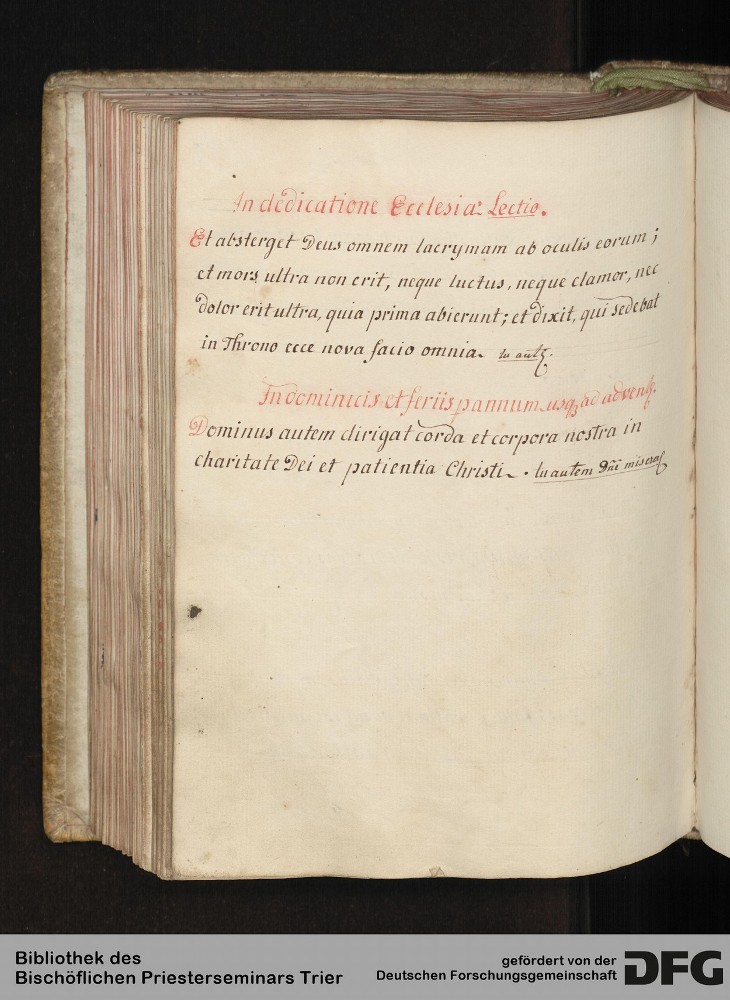 In dedicatione Ecclesiæ Lectio.
Et absterget Deus omnem lacrymam ab oculis eorum;
et mors ultra non erit, neque luctus, neque clamor, nec
dolor erit ultra, quia prima abierunt; et dixit, qui sedebat
in Throno ecce nova facio omnia. tu aut.
In dominicis et feriis p annum usq ad adven.
Dominus autem dirigat corda et corpora nostra in
charitate Dei et patientia Christi. tu autem Dñe miser
Bibliothek des
Bischöflichen Priesterseminars Trier
gefördert von der
Deutschen Forschungsgemeinschaft
DFG